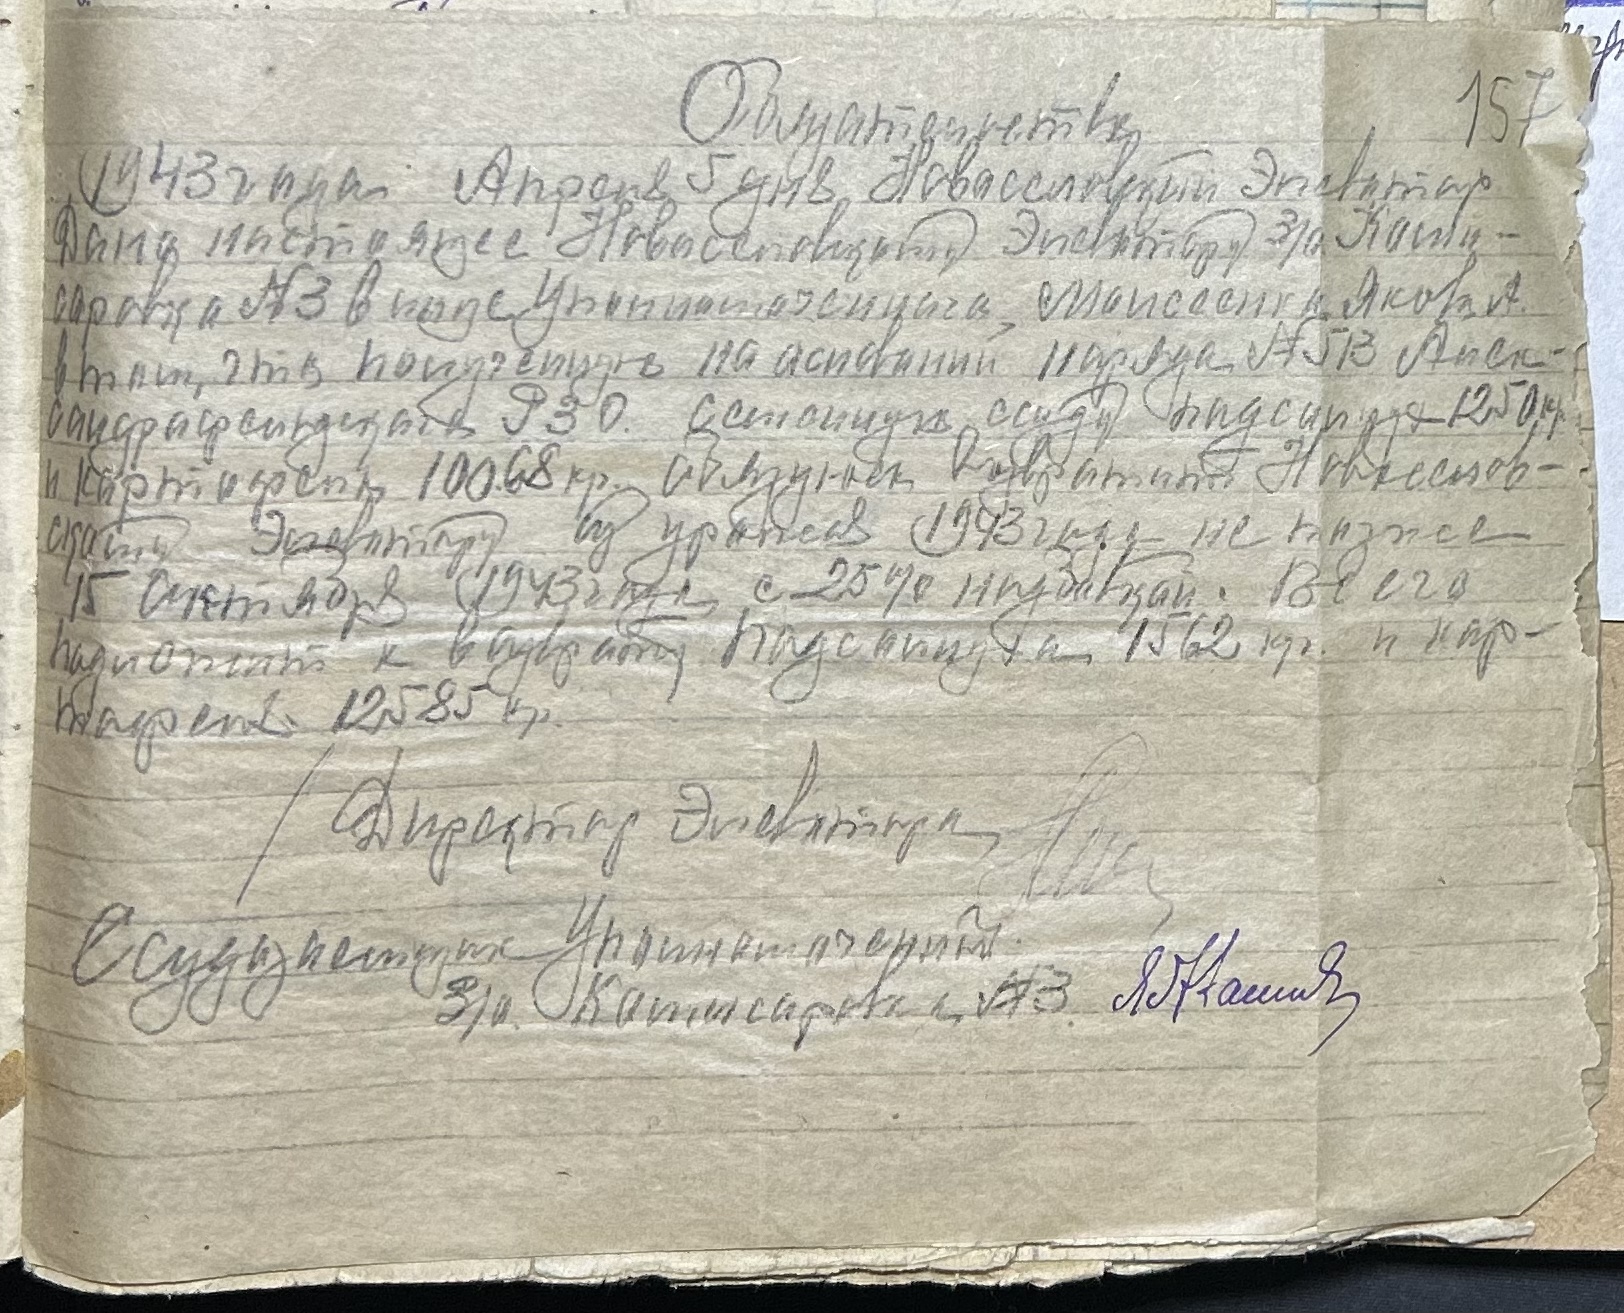 Обязательство
157
1943 года Апреля 5 дня Новоселовский Элеватор
Дано настоящее Новоселовскому Элеватору З/о Коми-
саровка №3 в лице Уполномоченного, Моисеенко Яков А.
в том, что полученную на основании наряда №513 Алек-
сандрфельдского РЗО. семенную ссуду подсолнуха 1250 кг.
и картофеля 10068 кг. обязуюсь возвратить Новоселов-
скому Элеватору из урожая 1943 года не позже
15 Сентября 1943 года с 25% надбавкой. Всего
подлежит к возврату Подсолнуха 1562 кг. и кар-
тофеля 12585 кг.
Директор Элеватора
Ссудозаемщик Уполномоченный
З/о. Комисаровка №3.